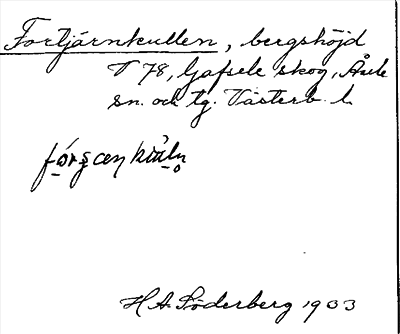 Fortjärnkullen, bergshöjd
T 78, Gafsele skog, Åsele
sn. och tg. Västerb. l.
H. A. Söderberg 1933